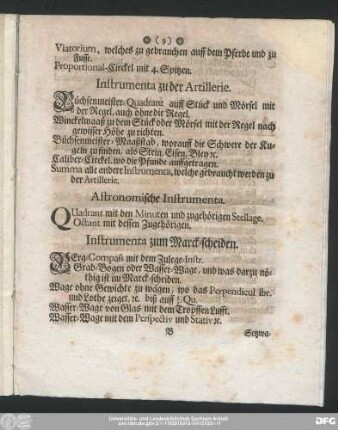 (9)
Viatorium, welches zu gebrauchen auff dem Pferde und zu
Fusse.
Proportional-Circkel mit 4. Spitzen.
Instrumenta zu der Artillerie.
Büchsenmeister-Quadrant auff Stück und Mörsel mit
der Regel, auch ohne die Regel.
Winckelmaaß zu dem Stück oder Mörsel mit der Regel nach
gewisser Höhe zu richten.
Büchsenmeister-Maaßstab, worauff die Schwere der Ku-
geln zu finden, als Stein, Eisen, Bley ꝛc.
Caliber-Circkel, wo die Pfunde auffgetragen.
Summa alle andere Instrumenta, welche gebraucht werden zu
der Artillerie.
Astronomische Instrumenta.
QUadrant mit den Minuten und zugehörigen Stellage.
Octant mit dessen Zugehörigen.
Instrumenta zum Marck-scheiden.
BErg-Compaß mit dem Zulege-Instr.
Grad-Bogen oder Wasser-Wage, und was darzu nö-
thig ist im Marck-scheiden.
Wage ohne Gewichte zu wägen, wo das Perpendicul lbr.
und Lothe zeiget, ꝛc. biß auff ¼. Qu.
Wasser-Wage von Glas mit dem Tropffen Lufft.
Wasser-Wage mit dem Perspectiv und Stativ ꝛc.
B Setzwa-
Universitäts- und Landesbibliothek Sachsen-Anhalt